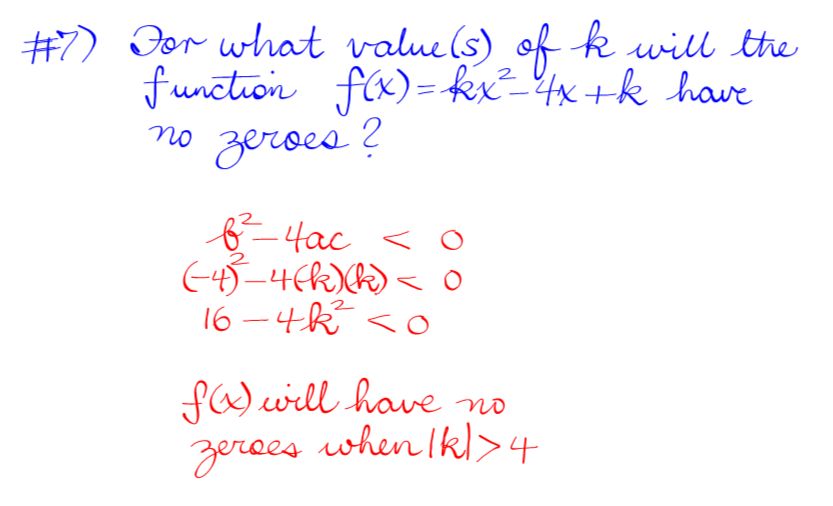 #7) For what value(s) of k will the
function f(x) = kx² - 4x + k have
no zeroes?
b² - 4ac < 0
(-4)² - 4(k)(k) < 0
16 - 4k² < 0
f(x) will have no
zeroes when |k| > 4